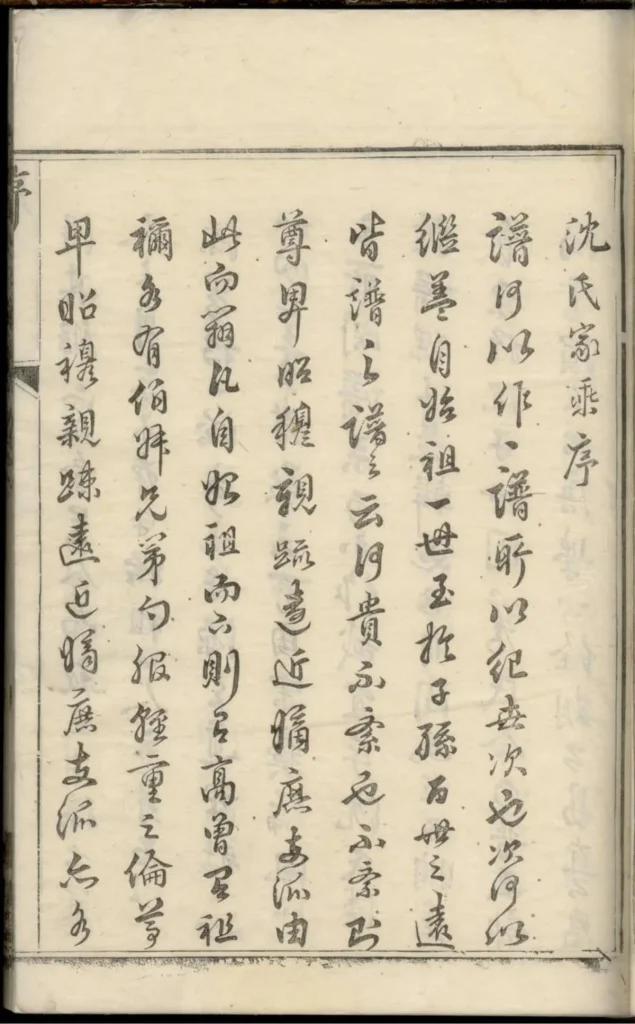 沈氏家乘序
譜何以作〻譜所以紀世次也次何以
繼蓋自始祖一世至於子孫百世之遠
皆譜之譜之云何貴不紊也不紊則
尊卑昭穆親疏遠近嫡庶支派由
此而명凡自始祖而下則有高曾有祖
禰各有伯叔兄弟勻服輕重之倫等
卑昭穆親疎遠近嫡庶支派亦各
序